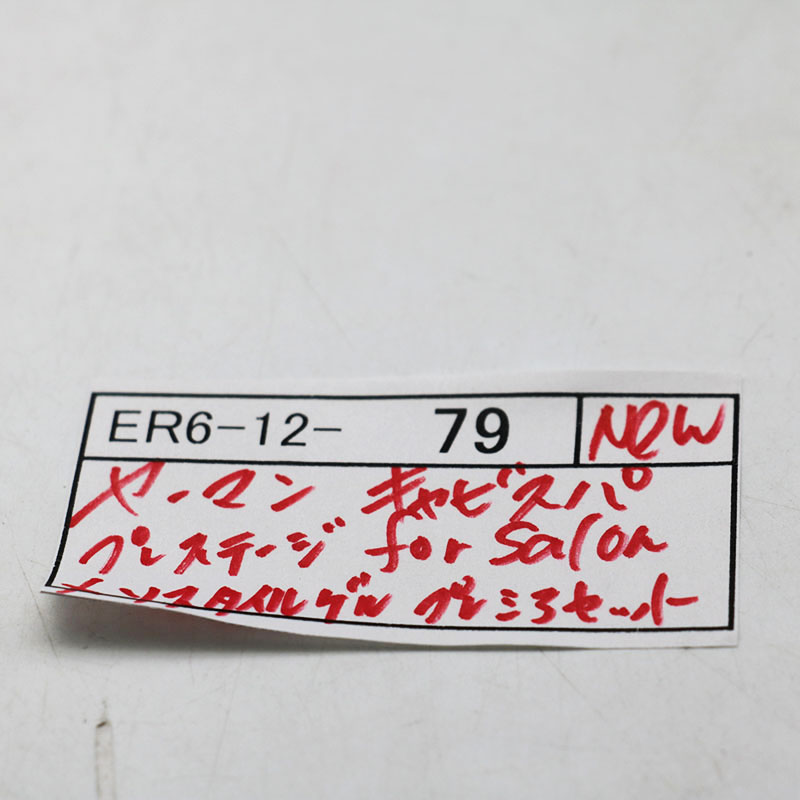 ER6-12- 79 NEW
ヤーマン キャビスパ
プレステージ for Salon
スタイルゲル プレミアセット